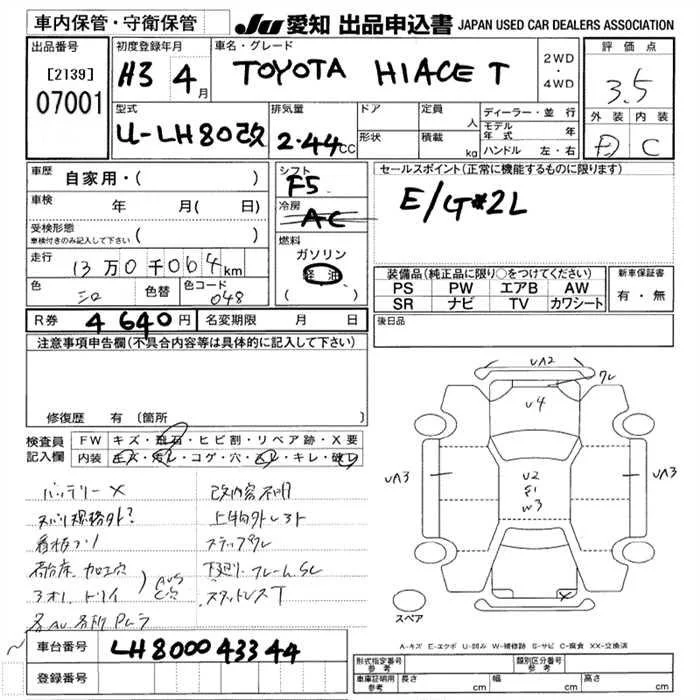 車内保管・守衛保管
JU 愛知 出品申込書 JAPAN USED CAR DEALERS ASSOCIATION
出品番号
[2139]
07001
初度登録年月
H3 4月
車名・グレード
TOYOTA HIACE T
2WD
・
4WD
評価点
3.5
外装 内装
D C
型式
U-LH80改
排気量
2.44cc
ドア
形状
定員 人
積載 kg
ディーラー・並行
モデル年式 年
ハンドル 左・右
車歴 自家用・( )
車検 年 月( 日)
受検形態
車検付きのみ記入して下さい ( )
走行 13万0千064km
色 シロ 色替 色コード 048
シフト
F5
冷房
AC
燃料
ガソリン
軽油
( )
セールスポイント(正常に機能するものに限ります)
E/G#2L
装備品(純正品に限り○をつけてください)
PS PW エアB AW
SR ナビ TV カワシート
新車保証書
有・無
R券 4640円 名変期限 月 日
後日品
注意事項申告欄(不具合内容等は具体的に記入して下さい)
修復歴 有 (箇所 )
検査員記入欄
FW キズ・飛石・ヒビ割・リペア跡・X要
内装 キズ・汚レ・コゲ・穴・スレ・キレ・破レ
バッテリーX 改内容不明
スペリ規格外?
ステップクレ
下廻り・フレームSC
加工穴
スタッドレスT
車台番号 LH80004 3344
登録番号
UA2
クレ
U4
UA3
U2
E1
W3
UA3
X
スペア
A-キズ E-エクボ U-凹み W-補修跡 S-サビ C-腐食 XX-交換済
形式指定番号 参考
類別区分番号 参考
車庫証明用 参考 長さ cm 幅 cm 高さ cm